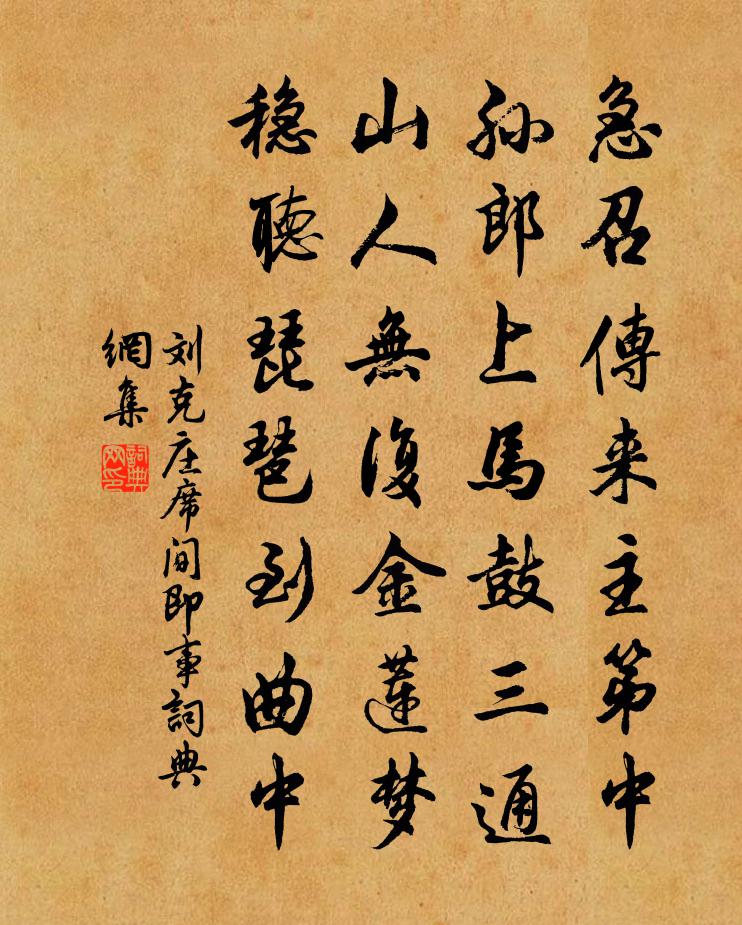 急召傳来主第中
孙郎上馬鼓三通
山人無復金蓮梦
穏聽琵琶到曲中
刘克庄席间即事詞典
網集
詞典
网印